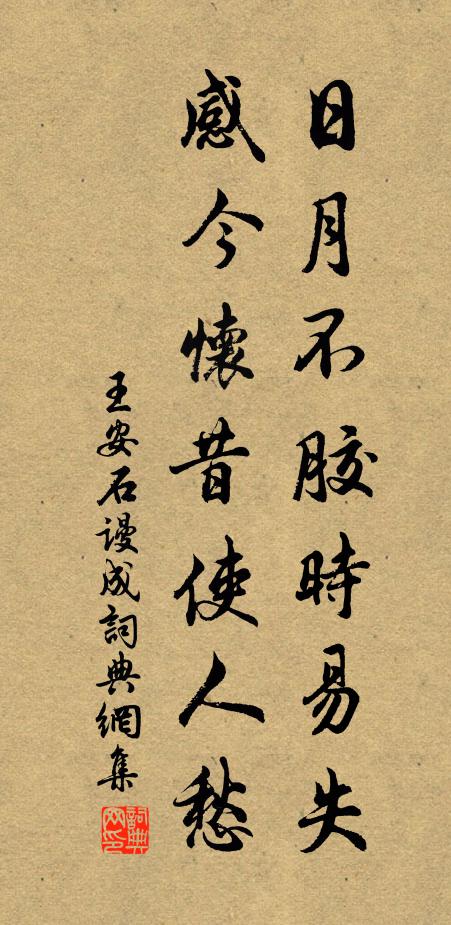 日月不膠時易失
感今懷昔使人愁
王安石謾成詞典網集
詞典網印